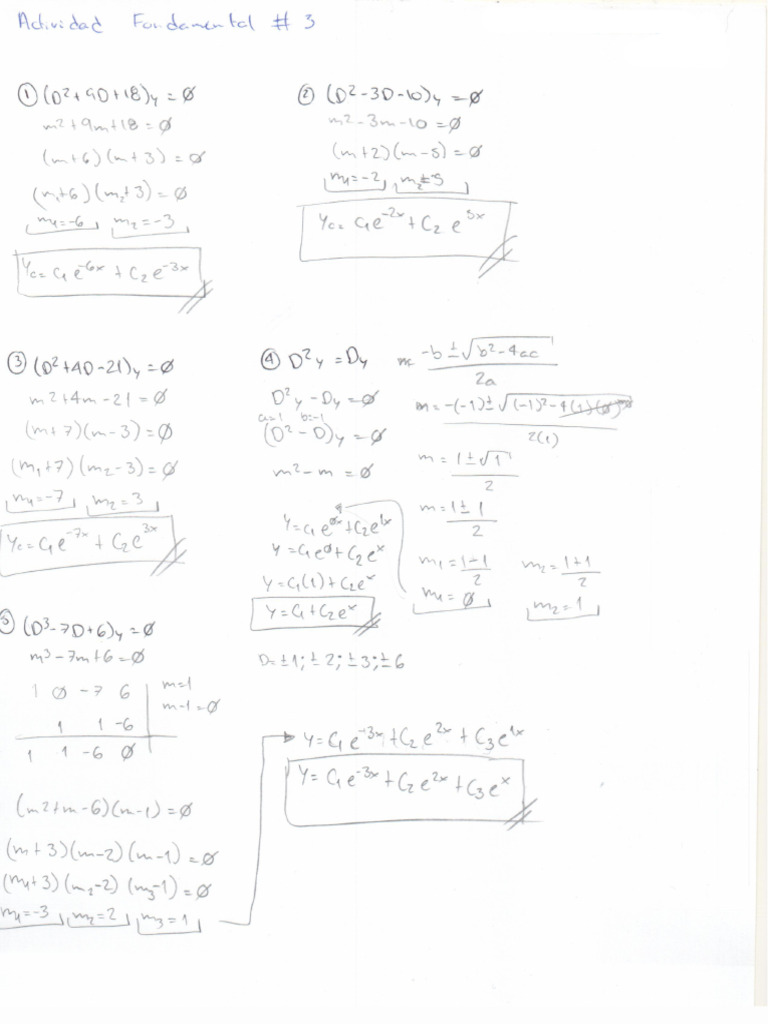 Actividad Fundamental # 3
① (D²+9D+18)y = ∅
m²+9m+18=∅
(m+6)(m+3)=∅
(m₁+6)(m₂+3)=∅
m₁=-6 m₂=-3
Yc= C₁e^-6x + C₂e^-3x
② (D²-3D-10)y = ∅
m²-3m-10=∅
(m+2)(m-5)=∅
m₁=-2 m₂=5
Yc= C₁e^-2x + C₂e^5x
③ (D²+4D-21)y = ∅
m²+4m-21=∅
(m+7)(m-3)=∅
(m₁+7)(m₂-3)=∅
m₁=-7 m₂=3
Yc= C₁e^-7x + C₂e^3x
④ D²y = Dy
D²y - Dy = ∅
a=1 b=-1
(D²-D)y = ∅
m²-m = ∅
Y= C₁e^∅x + C₂e^1x
Y= C₁e^∅ + C₂e^x
Y= C₁(1) + C₂e^x
Y= C₁ + C₂e^x
m= -b ± √b²-4ac / 2a
m= -(-1) ± √(-1)²-4(1)(∅) / 2(1)
m= 1±√1 / 2
m= 1±1 / 2
m₁= 1-1 / 2 m₂= 1+1 / 2
m₁= ∅ m₂= 1
⑤ (D³-7D+6)y = ∅
m³-7m+6=∅
D= ±1; ±2; ±3; ±6
1 ∅ -7 6 m=1
m-1=∅
1 1 -6
1 1 -6 ∅
(m²+m-6)(m-1)=∅
(m+3)(m-2)(m-1)=∅
(m₁+3)(m₂-2)(m₃-1)=∅
m₁=-3 m₂=2 m₃=1
Y= C₁e^-3x + C₂e^2x + C₃e^1x
Y= C₁e^-3x + C₂e^2x + C₃e^x